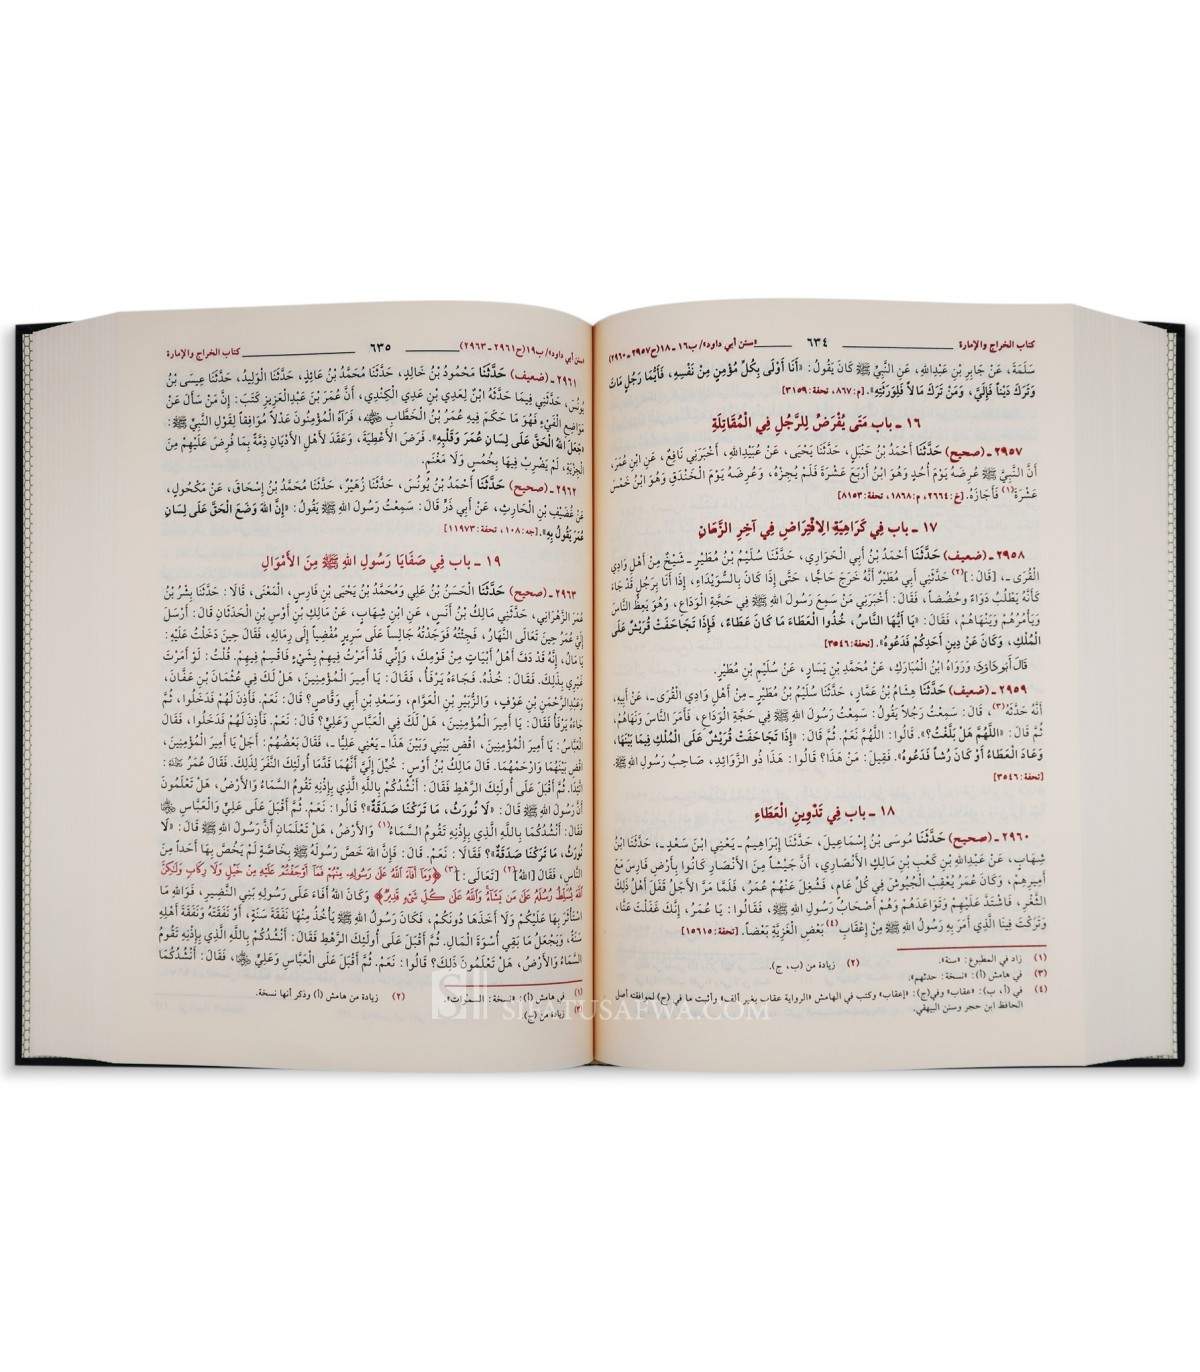 كتاب الخراج والإمارة ٦٣٤ «سنن أبي داود»/ ب١٦ ـ ١٨(ح٢٩٥٧ ـ ٢٩٦٠)
سَلَمَةَ، عَنْ جَابِرِ بْنِ عَبْدِاللهِ، عَنِ النَّبِيِّ ﷺ كَانَ يَقُولُ: «أَنَا أَوْلَى بِكُلِّ مُؤْمِنٍ مِنْ نَفْسِهِ، فَأَيُّمَا رَجُلٍ مَاتَ
وَتَرَكَ دَيْناً فَإِلَيَّ، وَمَنْ تَرَكَ مَالاً فَلِوَرَثَتِهِ». [م: ٨٦٧، تحفة: ٣١٥٩]
١٦ ـ باب مَتَى يُفْرَضُ لِلرَّجُلِ فِي الْمُقَاتِلَةِ
٢٩٥٧ ـ (صحيح) حَدَّثَنَا أَحْمَدُ بْنُ حَنْبَلٍ، حَدَّثَنَا يَحْيَى، عَنْ عُبَيْدِاللهِ، أَخْبَرَنِي نَافِعٌ، عَنِ ابْنِ عُمَرَ،
أَنَّ النَّبِيَّ ﷺ عُرِضَهُ يَوْمَ أُحُدٍ وَهُوَ ابْنُ أَرْبَعَ عَشْرَةَ فَلَمْ يُجِزْهُ، وَعُرِضَهُ يَوْمَ الْخَنْدَقِ وَهُوَ ابْنُ خَمْسَ
عَشْرَةَ(١) فَأَجَازَهُ. [خ: ٢٦٦٤، م: ١٨٦٨، تحفة: ٨١٥٣]
١٧ ـ باب فِي كَرَاهِيَةِ الِافْتِرَاضِ فِي آخِرِ الزَّمَانِ
٢٩٥٨ ـ (ضعيف) حَدَّثَنَا أَحْمَدُ بْنُ أَبِي الْحَوَارِي، حَدَّثَنَا سُلَيْمُ بْنُ مُطَيْرٍ ـ شَيْخٌ مِنْ أَهْلِ وَادِي
الْقُرَى ـ، [قَالَ:](٢) حَدَّثَنِي أَبِي مُطَيْرٌ أَنَّهُ خَرَجَ حَاجًّا، حَتَّى إِذَا كَانَ بِالسُّوَيْدَاءِ، إِذَا أَنَا بِرَجُلٍ قَدْ جَاءَ
كَأَنَّهُ يَطْلُبُ دَوَاءً وَحُضُضاً، فَقَالَ: أَخْبَرَنِي مَنْ سَمِعَ رَسُولَ اللهِ ﷺ فِي حَجَّةِ الْوَدَاعِ، وَهُوَ يَعِظُ النَّاسَ
وَيَأْمُرُهُمْ وَيَنْهَاهُمْ، فَقَالَ: «يَا أَيُّهَا النَّاسُ، خُذُوا الْعَطَاءَ مَا كَانَ عَطَاءً، فَإِذَا تَجَاحَفَتْ قُرَيْشٌ عَلَى
الْمُلْكِ، وَكَانَ عَنْ دِينِ أَحَدِكُمْ فَدَعُوهُ». [تحفة: ٣٥٤٦]
قَالَ أَبو دَاوُدَ: وَرَوَاهُ ابْنُ الْمُبَارَكِ، عَنْ مُحَمَّدِ بْنِ يَسَارٍ، عَنْ سُلَيْمِ بْنِ مُطَيْرٍ.
٢٩٥٩ ـ (ضعيف) حَدَّثَنَا هِشَامُ بْنُ عَمَّارٍ، حَدَّثَنَا سُلَيْمُ بْنُ مُطَيْرٍ ـ مِنْ أَهْلِ وَادِي الْقُرَى ـ، عَنْ أَبِيهِ،
أَنَّهُ حَدَّثَهُ(٣)، قَالَ: سَمِعْتُ رَجُلاً يَقُولُ: سَمِعْتُ رَسُولَ اللهِ ﷺ فِي حَجَّةِ الْوَدَاعِ، فَأَمَرَ النَّاسَ وَنَهَاهُمْ،
ثُمَّ قَالَ: «اللَّهُمَّ هَلْ بَلَّغْتُ؟». قَالُوا: اللَّهُمَّ نَعَمْ. ثُمَّ قَالَ: «إِذَا تَجَاحَفَتْ قُرَيْشٌ عَلَى الْمُلْكِ فِيمَا بَيْنَهَا،
وَعَادَ الْعَطَاءُ أَوْ كَانَ رُشاً فَدَعُوهُ». فَقِيلَ: مَنْ هَذَا؟ قَالُوا: هَذَا ذُو الزَّوَائِدِ، صَاحِبُ رَسُولِ اللهِ ﷺ.
[تحفة: ٣٥٤٦]
١٨ ـ باب فِي تَدْوِينِ الْعَطَاءِ
٢٩٦٠ ـ (صحيح) حَدَّثَنَا مُوسَى بْنُ إِسْمَاعِيلَ، حَدَّثَنَا إِبْرَاهِيمُ ـ يَعْنِي ابْنَ سَعْدٍ ـ، حَدَّثَنَا ابْنُ
شِهَابٍ، عَنْ عَبْدِاللهِ بْنِ كَعْبِ بْنِ مَالِكٍ الْأَنْصَارِيِّ، أَنَّ جَيْشاً مِنَ الْأَنْصَارِ كَانُوا بِأَرْضِ فَارِسَ مَعَ
أَمِيرِهِمْ، وَكَانَ عُمَرُ يُعْقِبُ الْجُيُوشَ فِي كُلِّ عَامٍ، فَشُغِلَ عَنْهُمْ عُمَرُ، فَلَمَّا مَرَّ الْأَجَلُ قَفَلَ أَهْلُ ذَلِكَ
الثَّغْرِ، فَاشْتَدَّ عَلَيْهِمْ وَتَوَاعَدَهُمْ وَهُمْ أَصْحَابُ رَسُولِ اللهِ ﷺ، فَقَالُوا: يَا عُمَرُ، إِنَّكَ غَفَلْتَ عَنَّا،
وَتَرَكْتَ فِينَا الَّذِي أَمَرَ بِهِ رَسُولُ اللهِ ﷺ مِنْ إِعْقَابِ(٤) بَعْضِ الْغَزِيَّةِ بَعْضاً. [تحفة: ١٥٦١٥]
(١) زاد في المطبوع: «سنة». (٢) زيادة من (ب، ج).
(٣) في هامش (أ): «نسخة: حدثهم».
(٤) في (أ، ب): «عقاب» وفي(ج): «إعقاب» وكتب في الهامش: الرواية عقاب بغير ألف» وأثبت ما في (ج) لموافقته أصل
الحافظ ابن حجر وسنن البيهقي.
«سنن أبي داود»/ ب١٩(ح٢٩٦١ ـ ٢٩٦٣) ٦٣٥ كتاب الخراج والإمارة
٢٩٦١ ـ (ضعيف) حَدَّثَنَا مَحْمُودُ بْنُ خَالِدٍ، حَدَّثَنَا مُحَمَّدُ بْنُ عَائِذٍ، حَدَّثَنَا الْوَلِيدُ، حَدَّثَنَا عِيسَى بْنُ
يُونُسَ، حَدَّثَنِي فِيمَا حَدَّثَهُ ابْنٌ لِعَدِيِّ بْنِ عَدِيٍّ الْكِنْدِيِّ، أَنَّ عُمَرَ بْنَ عَبْدِالْعَزِيزِ كَتَبَ: إِنَّ مَنْ سَأَلَ عَنْ
مَوَاضِعِ الْفَيْءِ فَهُوَ مَا حَكَمَ فِيهِ عُمَرُ بْنُ الْخَطَّابِ رضي الله عنه، فَرَآهُ الْمُؤْمِنُونَ عَدْلاً مُوَافِقاً لِقَوْلِ النَّبِيِّ ﷺ:
«جَعَلَ اللهُ الْحَقَّ عَلَى لِسَانِ عُمَرَ وَقَلْبِهِ». فَرَضَ الْأَعْطِيَةَ، وَعَقَدَ لِأَهْلِ الْأَدْيَانِ ذِمَّةً بِمَا فُرِضَ عَلَيْهِمْ مِنَ
الْجِزْيَةِ، لَمْ يَضْرِبْ فِيهَا بِخُمُسٍ وَلَا مَغْنَمٍ.
٢٩٦٢ ـ (صحيح) حَدَّثَنَا أَحْمَدُ بْنُ يُونُسَ، حَدَّثَنَا زُهَيْرٌ، حَدَّثَنَا مُحَمَّدُ بْنُ إِسْحَاقَ، عَنْ مَكْحُولٍ،
عَنْ غُضَيْفِ بْنِ الْحَارِثِ، عَنْ أَبِي ذَرٍّ قَالَ: سَمِعْتُ رَسُولَ اللهِ ﷺ يَقُولُ: «إِنَّ اللهَ وَضَعَ الْحَقَّ عَلَى لِسَانِ
عُمَرَ يَقُولُ بِهِ». [جه: ١٠٨، تحفة: ١١٩٧٣]
١٩ ـ باب فِي صَفَايَا رَسُولِ اللهِ ﷺ مِنَ الْأَمْوَالِ
٢٩٦٣ ـ (صحيح) حَدَّثَنَا الْحَسَنُ بْنُ عَلِيٍّ وَمُحَمَّدُ بْنُ يَحْيَى بْنِ فَارِسٍ، الْمَعْنَى، قَالَا: حَدَّثَنَا بِشْرُ بْنُ
عُمَرَ الزَّهْرَانِيُّ، حَدَّثَنِي مَالِكُ بْنُ أَنَسٍ، عَنِ ابْنِ شِهَابٍ، عَنْ مَالِكِ بْنِ أَوْسِ بْنِ الْحَدَثَانِ قَالَ: أَرْسَلَ
إِلَيَّ عُمَرُ حِينَ تَعَالَى النَّهَارُ، فَجِئْتُهُ فَوَجَدْتُهُ جَالِساً عَلَى سَرِيرٍ مُفْضِياً إِلَى رِمَالِهِ، فَقَالَ حِينَ دَخَلْتُ عَلَيْهِ:
يَا مَالِ، إِنَّهُ قَدْ دَفَّ أَهْلُ أَبْيَاتٍ مِنْ قَوْمِكَ، وَإِنِّي قَدْ أَمَرْتُ فِيهِمْ بِشَيْءٍ فَاقْسِمْ فِيهِمْ. قُلْتُ: لَوْ أَمَرْتَ
غَيْرِي بِذَلِكَ. فَقَالَ: خُذْهُ. فَجَاءَهُ يَرْفَأُ، فَقَالَ: يَا أَمِيرَ الْمُؤْمِنِينَ، هَلْ لَكَ فِي عُثْمَانَ بْنِ عَفَّانَ،
وَعَبْدِالرَّحْمَنِ بْنِ عَوْفٍ، وَالزُّبَيْرِ بْنِ الْعَوَّامِ، وَسَعْدِ بْنِ أَبِي وَقَّاصٍ؟ قَالَ: نَعَمْ. فَأَذِنَ لَهُمْ فَدَخَلُوا، ثُمَّ
جَاءَهُ يَرْفَأُ فَقَالَ: يَا أَمِيرَ الْمُؤْمِنِينَ، هَلْ لَكَ فِي الْعَبَّاسِ وَعَلِيٍّ؟ قَالَ: نَعَمْ. فَأَذِنَ لَهُمْ فَدَخَلُوا، فَقَالَ
الْعَبَّاسُ: يَا أَمِيرَ الْمُؤْمِنِينَ، اقْضِ بَيْنِي وَبَيْنَ هَذَا ـ يَعْنِي عَلِيًّا ـ، فَقَالَ بَعْضُهُمْ: أَجَلْ يَا أَمِيرَ الْمُؤْمِنِينَ،
اقْضِ بَيْنَهُمَا وَارْحَمْهُمَا. قَالَ مَالِكُ بْنُ أَوْسٍ: خُيِّلَ إِلَيَّ أَنَّهُمَا قَدَّمَا أُولَئِكَ النَّفَرَ لِذَلِكَ. فَقَالَ عُمَرُ:
اتَّئِدَا. ثُمَّ أَقْبَلَ عَلَى أُولَئِكَ الرَّهْطِ فَقَالَ: أَنْشُدُكُمْ بِاللَّهِ الَّذِي بِإِذْنِهِ تَقُومُ السَّمَاءُ وَالْأَرْضُ، هَلْ تَعْلَمُونَ
أَنَّ رَسُولَ اللهِ ﷺ قَالَ: «لَا نُورَثُ، مَا تَرَكْنَا صَدَقَةٌ»؟ قَالُوا: نَعَمْ. ثُمَّ أَقْبَلَ عَلَى عَلِيٍّ وَالْعَبَّاسِ
فَقَالَ: أَنْشُدُكُمَا بِاللَّهِ الَّذِي بِإِذْنِهِ تَقُومُ السَّمَاءُ(١) وَالْأَرْضُ، هَلْ تَعْلَمَانِ أَنَّ رَسُولَ اللهِ ﷺ قَالَ: «لَا
نُورَثُ، مَا تَرَكْنَا صَدَقَةٌ»؟ فَقَالَا: نَعَمْ. قَالَ: فَإِنَّ اللهَ خَصَّ رَسُولَهُ ﷺ بِخَاصَّةٍ لَمْ يَخُصَّ بِهَا أَحَداً مِنَ
النَّاسِ، فَقَالَ [اللهُ](٢) [تَعَالَى:](٣) ﴿وَمَا أَفَاءَ اللَّهُ عَلَى رَسُولِهِ مِنْهُمْ فَمَا أَوْجَفْتُمْ عَلَيْهِ مِنْ خَيْلٍ وَلَا رِكَابٍ وَلَكِنَّ
اللَّهَ يُسَلِّطُ رُسُلَهُ عَلَى مَنْ يَشَاءُ وَاللَّهُ عَلَى كُلِّ شَيْءٍ قَدِيرٌ﴾ وَكَانَ اللهُ أَفَاءَ عَلَى رَسُولِهِ بَنِي النَّضِيرِ، فَوَاللهِ مَا
اسْتَأْثَرَ بِهَا عَلَيْكُمْ وَلَا أَخَذَهَا دُونَكُمْ، فَكَانَ رَسُولُ اللهِ ﷺ يَأْخُذُ مِنْهَا نَفَقَةَ سَنَةٍ، أَوْ نَفَقَتَهُ وَنَفَقَةَ أَهْلِهِ
سَنَةً، وَيَجْعَلُ مَا بَقِيَ أُسْوَةَ الْمَالِ. ثُمَّ أَقْبَلَ عَلَى أُولَئِكَ الرَّهْطِ فَقَالَ: أَنْشُدُكُمْ بِاللَّهِ الَّذِي بِإِذْنِهِ تَقُومُ
السَّمَاءُ وَالْأَرْضُ، هَلْ تَعْلَمُونَ ذَلِكَ؟ قَالُوا: نَعَمْ. ثُمَّ أَقْبَلَ عَلَى الْعَبَّاسِ وَعَلِيٍّ، فَقَالَ: أَنْشُدُكُمَا
(١) في هامش (أ): «نسخة: السموات». (٢) زيادة من هامش (أ) وذكر أنها نسخة.
(٣) زيادة من (ج).
SIFATUSAFWA.COM